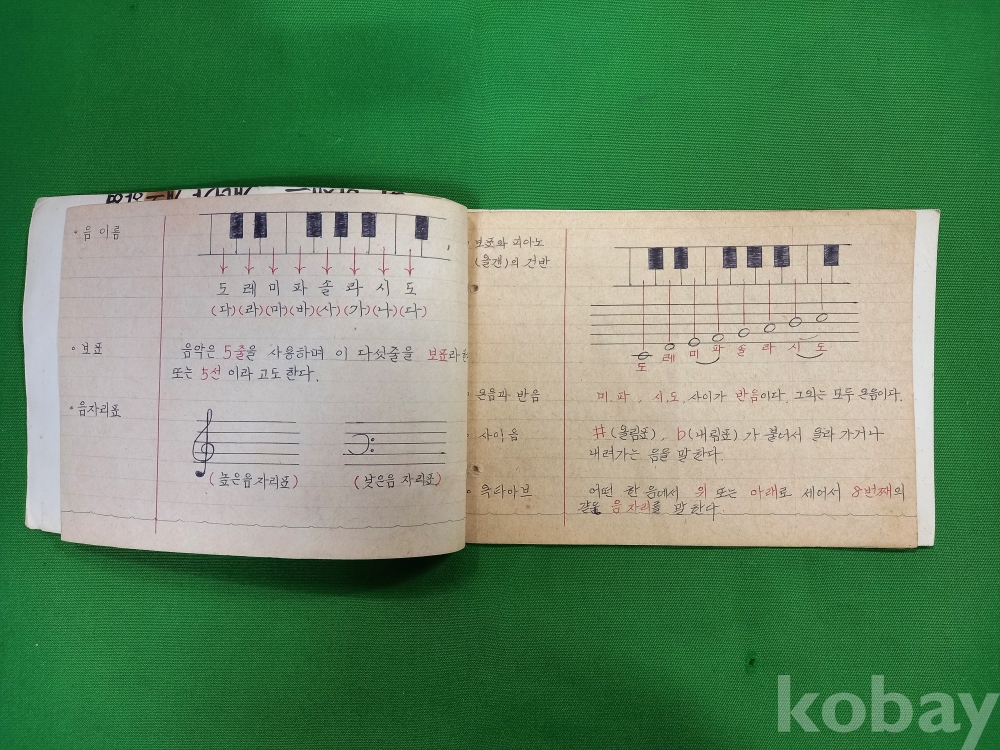 • 음 이름
도 레 미 파 솔 라 시 도
(다)(라)(마)(바)(사)(가)(나)(다)
• 보표
음악은 5줄을 사용하며 이 다섯줄을 보표라
또는 5선 이라고도 한다.
• 음자리표
(높은음자리표) (낮은음 자리표)
• 보표와 피아노
(올갠)의 건반
도 레 미 파 솔 라 시 도
• 온음과 반음
미. 파, 시. 도. 사이가 반음이다. 그외는 모두 온음이다.
• 사이음
♯(올림표), ♭(내림표)가 붙어서 올라가거나
내려가는 음을 말한다.
• 옥타아브
어떤 한 음에서 위 또는 아래로 세어서 8번째의
같은 음자리를 말한다.
kobay